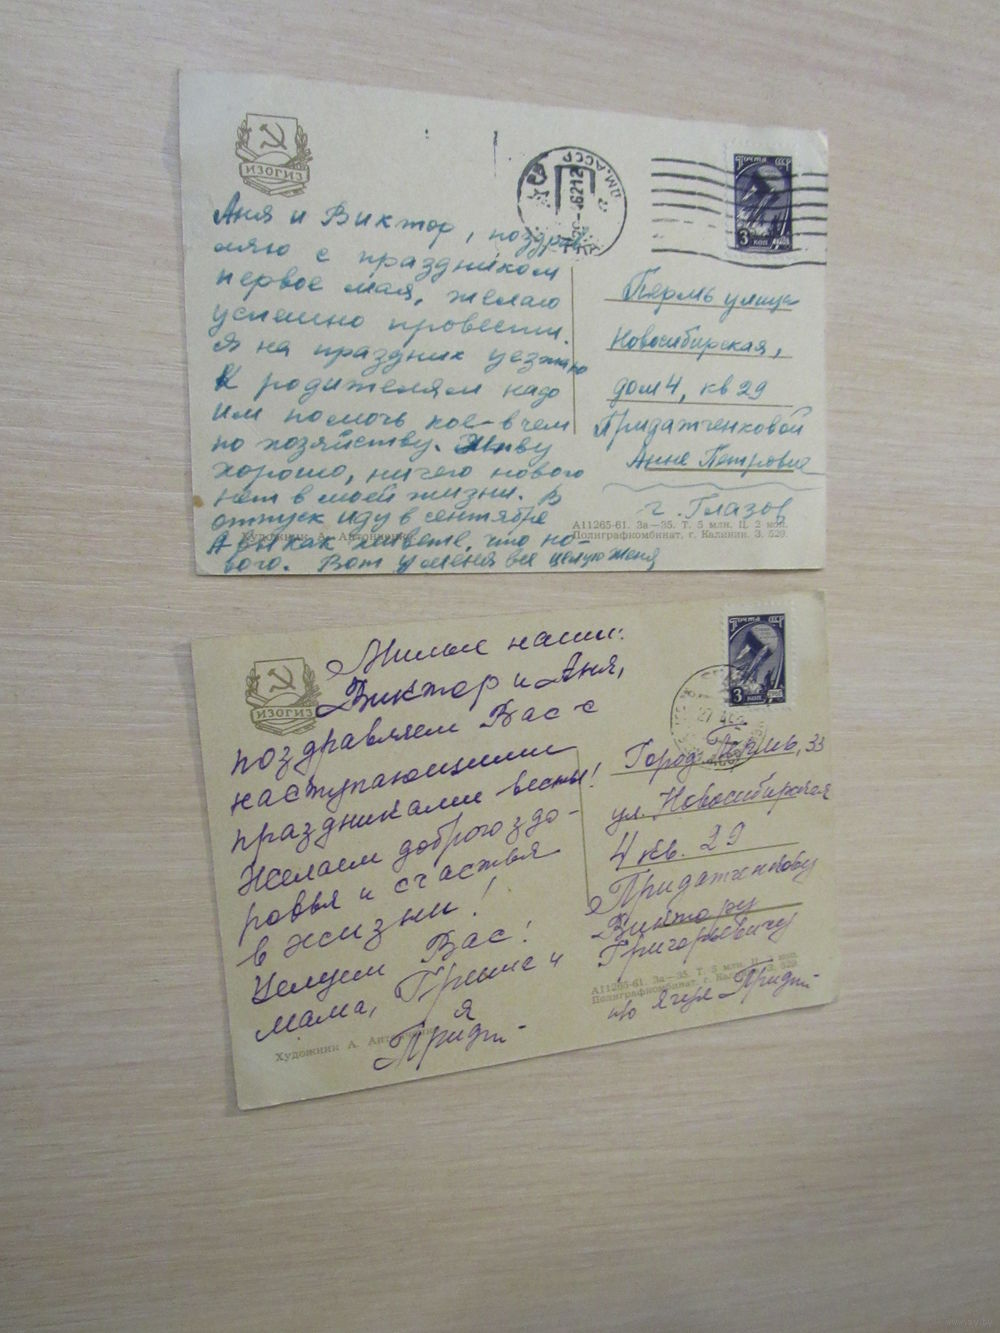 ИЗОГИЗ
УДМ.АССР
ПОЧТА СССР
3 КОП
Аня и Виктор, поздрав
ляю с праздником
первое мая, желаю
успешно провести.
Я на праздник уезжаю
к родителям надо
им помочь кое-в чем
по хозяйству. Живу
хорошо, ничего нового
нет в моей жизни. В
отпуск иду в сентябре
А вы как живете, что но-
вого. Вот у меня все целую женя
Пермь улица
Новосибирская,
дом 4, кв 29
Придатченковой
Анне Петровне
г. Глазов
А11265-61. За—35. Т. 5 млн. Ц. 2 коп.
Полиграфкомбинат, г. Калинин. З. 529.
Художник А. Антонченко
ИЗОГИЗ
ПОЧТА СССР
3 КОП
Милые наши:
Виктор и Аня,
поздравляем Вас с
наступающими
праздниками весны!
Желаем доброго здо-
ровья и счастья
в жизни!
Целуем Вас!
мама, Гриша и
я
Придт-
Город Пермь, 33
ул. Новосибирская
4 кв. 29
Придатченкову
Виктору
Григорьевичу
Придт-
А11265-61. За—35. Т. 5 млн. Ц. 2 коп.
Полиграфкомбинат, г. Калинин. З. 529.
Художник А. Антонченко